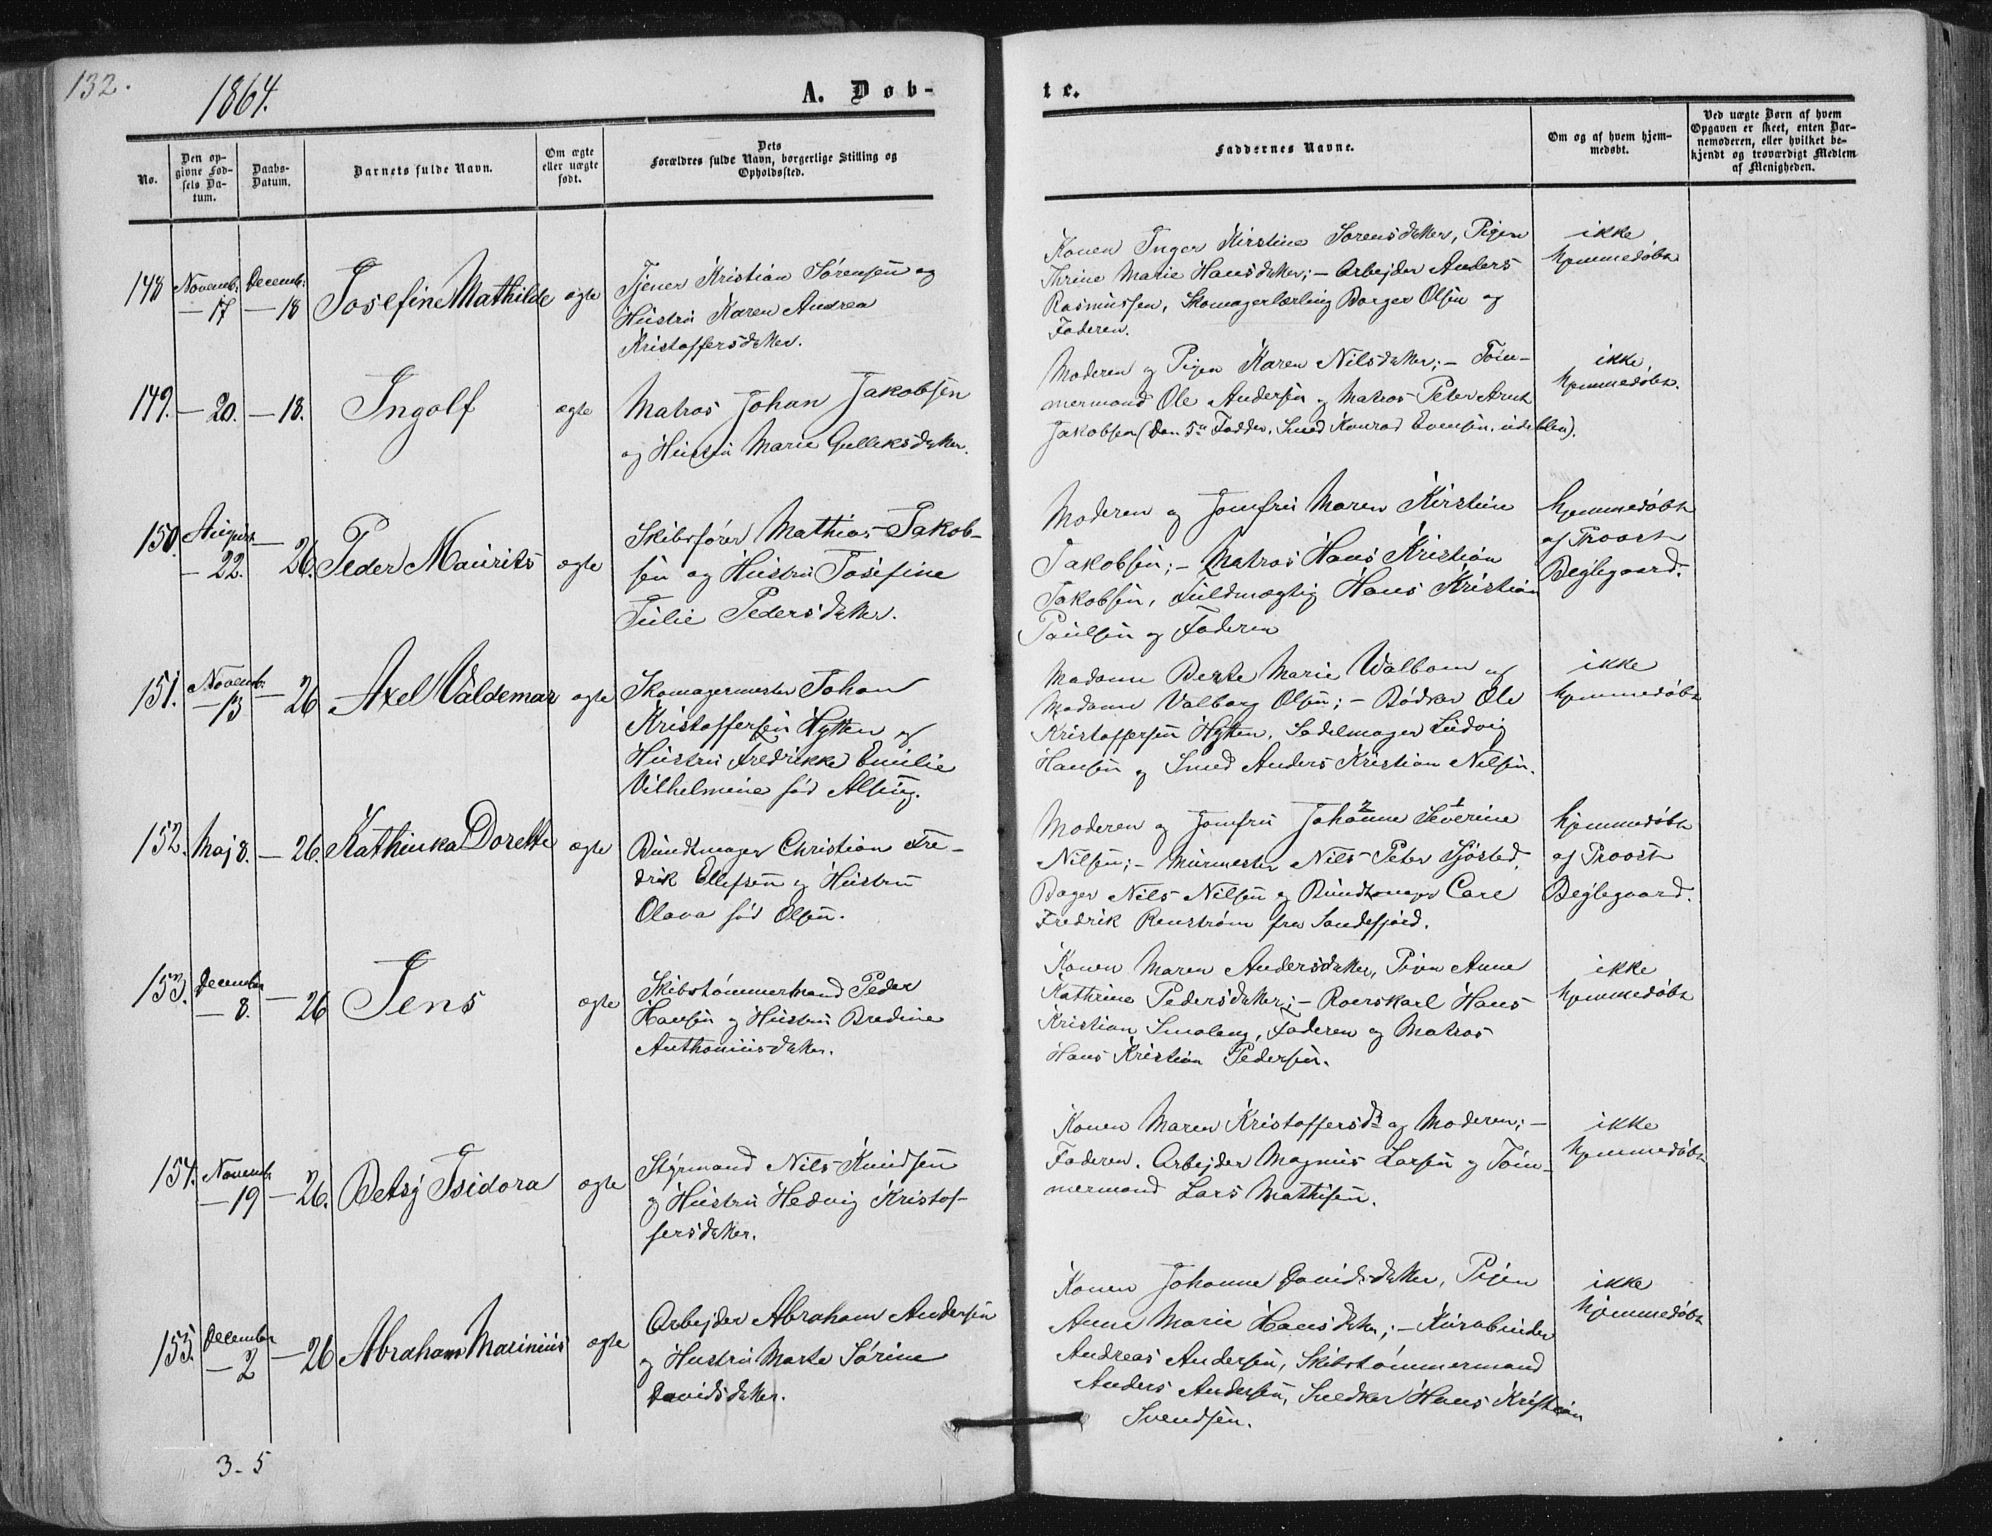 132.
1864.
A. Døb-
te.
No.
Den opgivne Fødsels Datum.
Daabs-Datum.
Barnets fulde Navn.
Om ægte eller uægte født.
Dets Forældres fulde Navn, borgerlige Stilling og Opholdssted.
Faddernes Navne.
Om og af hvem hjemmedøbt.
Ved uægte Børn af hvem Opgaven er skeet, enten Barnemoderen, eller hvilket bekjendt og troværdigt Medlem af Menigheden.
148 Novemb. — 17 Decemb. — 18 Josefine Mathilde ægte
Tjener Kristian Sørensen og
Hustru Karen Andrea
Kristoffersdatter.
Konen Inger Kirstine Sørensdatter, Pigen
Thrine Marie Hansdatter; — Arbejder Anders
Rasmussen, Skomagerlærling Borger Olsen og
Faderen.
ikke
hjemmedøbt
149. — 20. — 18. Ingolf ægte
Matros Johan Jakobsen
og Hustru Marie Gulleksdatter.
Moderen og Pigen Karen Nilsdatter; — Tøm-
mermand Ole Andersen og Matros Peter Arnt
Jakobsen (Den 5te Fadder, Smed Konrad Evensen, udeblev).
ikke
hjemmedøbt.
150. August — 22. — 26. Peder Maurits ægte
Skibsfører Mathias Jakob-
sen og Hustru Josefine
Julie Pedersdatter.
Moderen og Jomfru Maren Kirstine
Jakobsen; — Matros Hans Kristian
Jakobsen, Fuldmægtig Hans Kristian
Paulsen og Faderen
hjemmedøbt
af Provst
Bejlegaard.
151. Novemb. — 13 — 26 Axel Valdemar ægte
Skomagermester Johan
Kristoffersen Hytten og
Hustru Fredrikke Emilie
Vilhelmine født Alsing.
Madame Berte Marie Walbom og
Madame Valborg Olsen; — Bødker Ole
Kristoffersen Hytten, Sadelmager Ludvig
Hansen og Smed Anders Kristian Nilsen.
ikke
hjemmedøbt
152. Maj 8. — 26. Kathinka Dorette ægte
Bundtmager Christian Fre-
drik Ellefsen og Hustru
Olava født Olsen.
Moderen og Jomfru Johanne Severine
Nilsen; — Murmester Nils Peter Sjøsted,
Bager Nils Nilsen og Bundtmager Carl
Fredrik Renstrøm fra Sandefjord.
hjemmedøbt
af Provst
Bejlegaard.
153. December — 8. — 26 Jens ægte
Skibstømmermand Peder
Hansen og Hustru Bredine
Anthoniusdatter.
Konen Maren Andersdatter, Pigen Anne
Kathrine Pedersdatter; — Roerskarl Hans
Kristian Smaleng, Faderen og Matros
Hans Kristian Pedersen.
ikke
hjemmedøbt
154. Novemb. — 19 — 26. Betsy Isidora ægte
Styrmand Nils Knudsen
og Hustru Hedvig Kristof-
fersdatter.
Konen Maren Kristoffersdr og Moderen; —
Faderen, Arbejder Magnus Larsen og Tøm-
mermand Lars Mathisen.
ikke
hjemmedøbt
155. December — 2 — 26 Abraham Marinius ægte
Arbejder Abraham Andersen
og Hustru Marte Sørine
Davidsdatter.
Konen Johanne Davidsdatter, Pigen
Anne Marie Hansdatter; — Kurvbinder
Andreas Andersen, Skibstømmermand
Anders Andersen, Snedker Hans Kristian
Svendsen.
ikke
hjemmedøbt
3-5